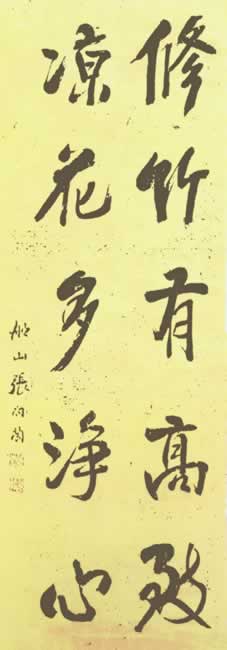 修竹有高致
凉花多淨心
船山張問陶